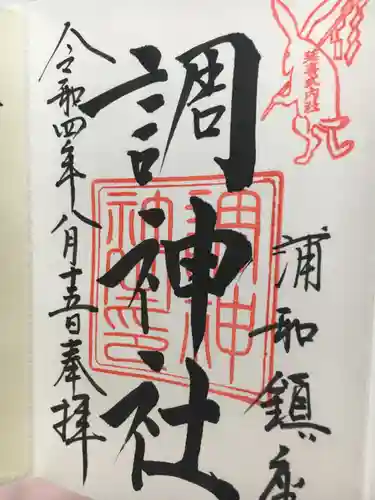 延喜式内社
浦和鎮座
調神社
調神社印
令和四年八月十五日奉拝